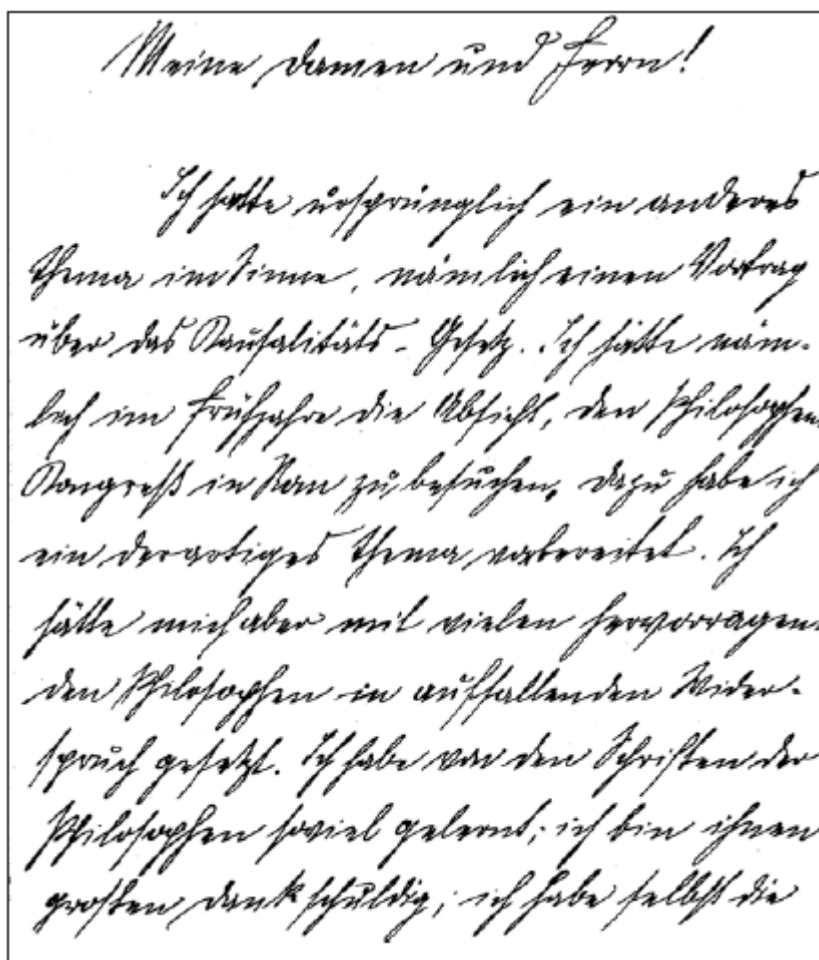 Meine Damen und Herrn!
Ich hatte ursprünglich ein anderes
Thema im Sinne, nämlich einen Vortrag
über das Kausalitäts-Gesetz. Ich hätte näm-
lich im Frühjahre die Absicht, den Philosophen-
Kongreß in Rom zu besuchen, dazu habe ich
ein derartiges Thema vorbereitet. Ich
hätte mich aber mit vielen hervorragen-
den Philosophen in auffallenden Wider-
spruch gesetzt. Ich habe von den Schriften der
Philosophen soviel gelernt; ich bin ihnen
großen Dank schuldig; ich habe selbst die